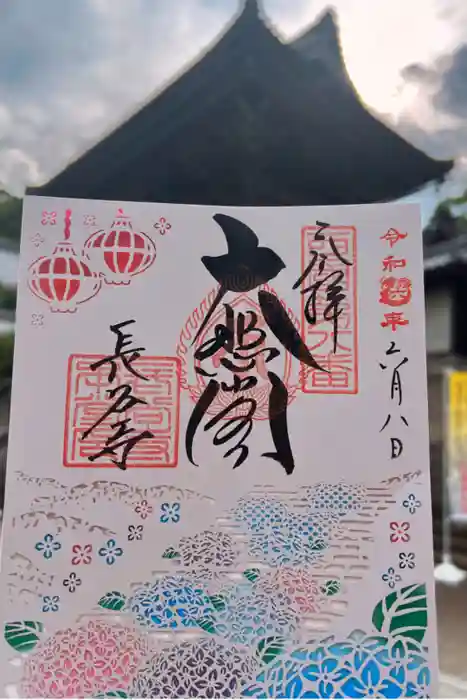 令和六年
六月八日
奉拝
大悲閣
長谷寺